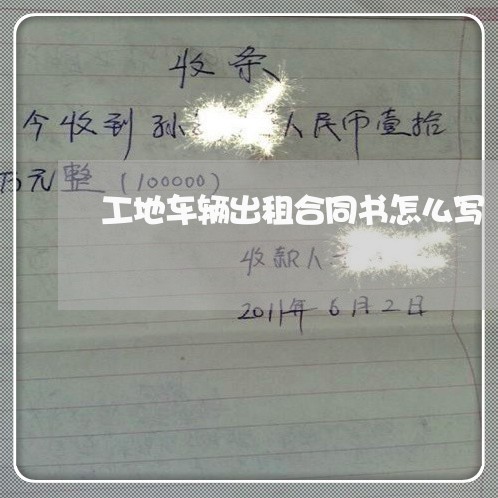 收条
今收到孙 人民币壹拾
万元整(100000)
工地车辆出租合同书怎么写
收款人
2011年6月2日